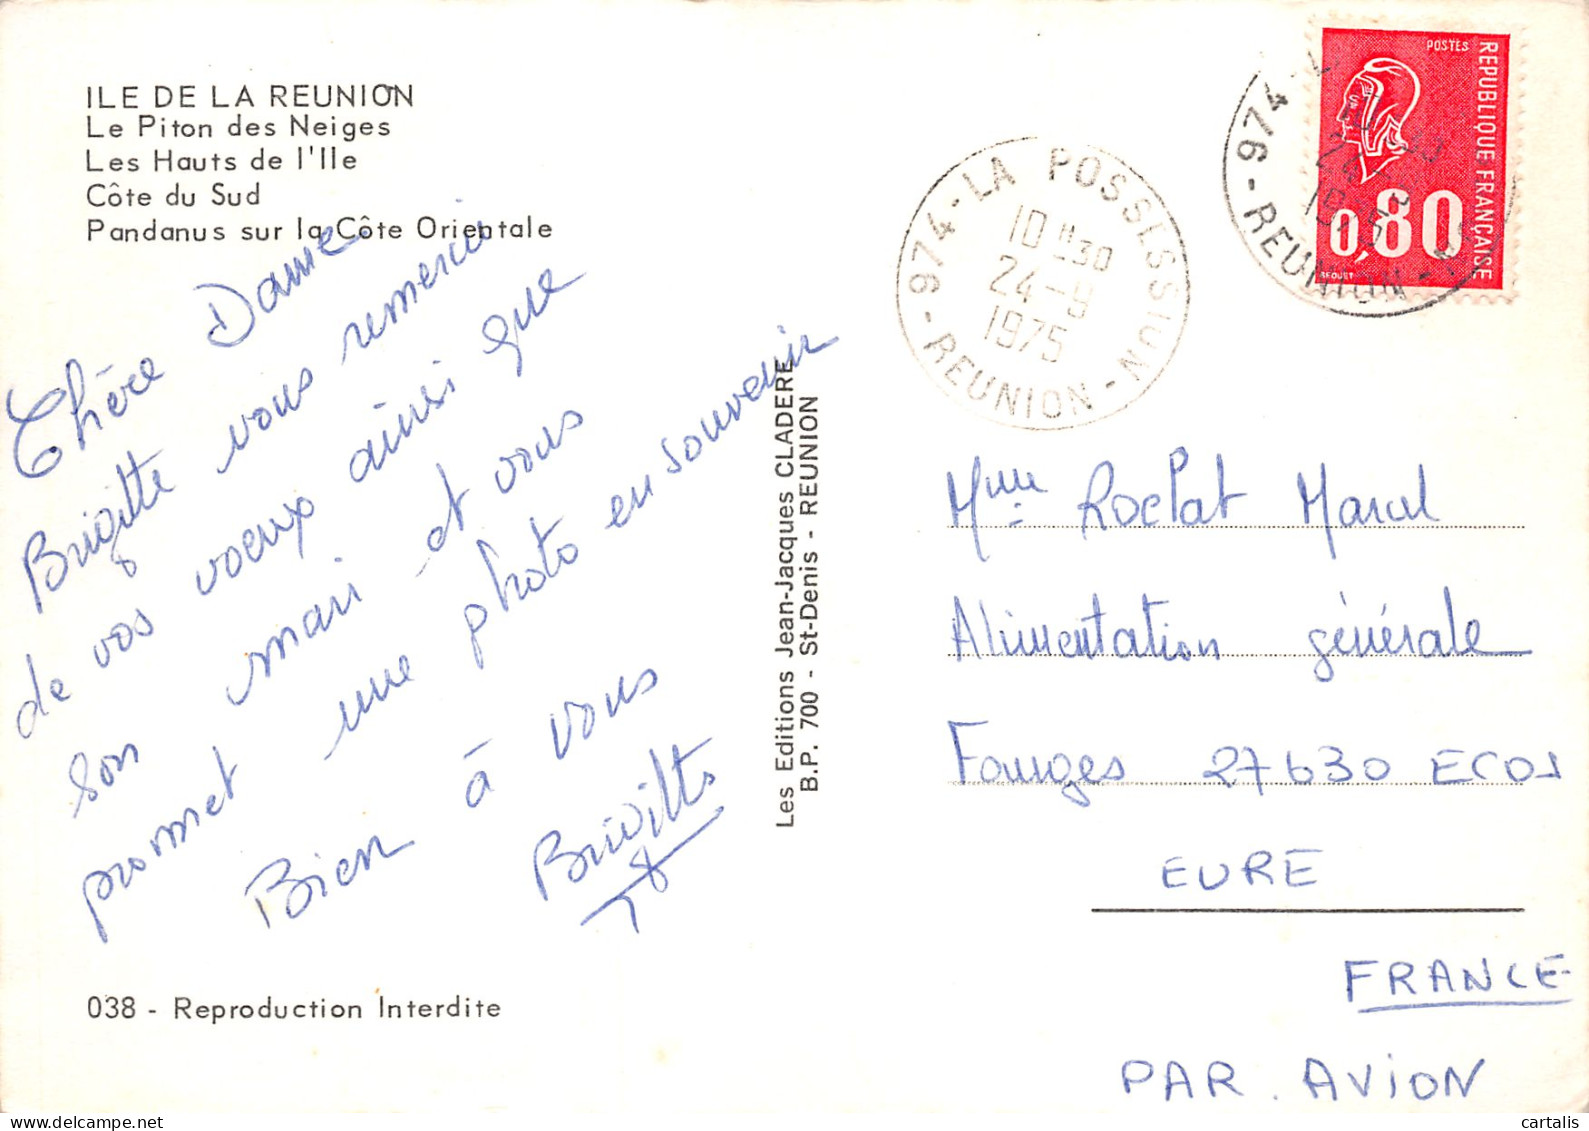 ILE DE LA REUNION
Le Piton des Neiges
Les Hauts de l'Ile
Côte du Sud
Pandanus sur la Côte Orientale
Chère Dame
Brigitte vous remercie
de vos voeux ainsi que
son mari et vous
promet une photo en souvenir
Bien à vous
Brigitte
038 - Reproduction Interdite
Les Editions Jean-Jacques CLADERE
B.P. 700 - St-Denis - REUNION
974 - LA POSSESSION
10 H30
24-9
1975
- REUNION -
974 - L
24-9
1975
- REUNION -
POSTES
REPUBLIQUE FRANÇAISE
0,80
BEQUET
Mme Roclat Marcel
Alimentation générale
Fourges 27630 ECOS
EURE
FRANCE
PAR AVION
cartalis